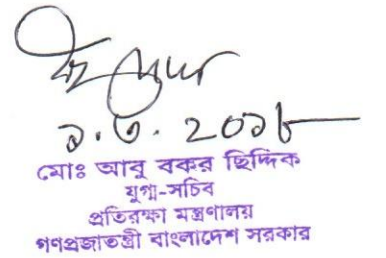 ১.৩.২০১৮
মোঃ আবু বকর ছিদ্দিক
যুগ্ম-সচিব
প্রতিরক্ষা মন্ত্রণালয়
গণপ্রজাতন্ত্রী বাংলাদেশ সরকার